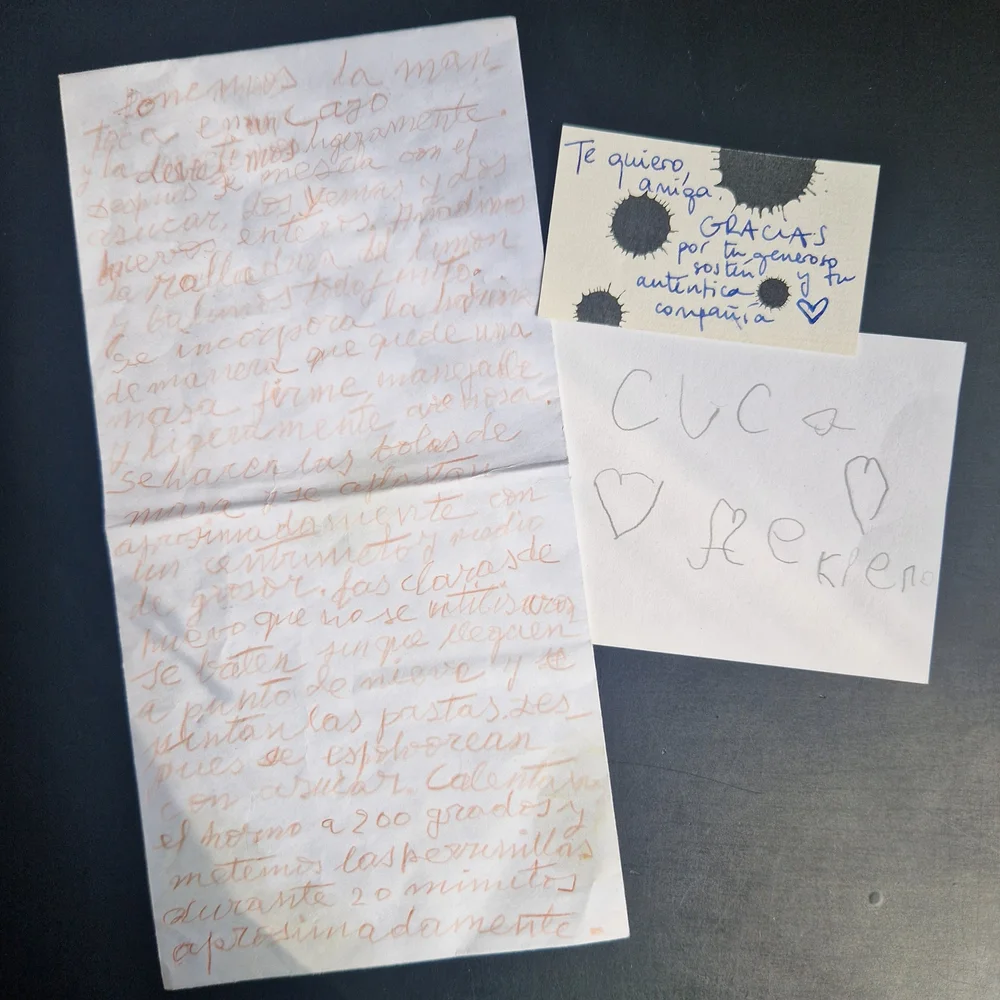 Ponemos la man-
teca en un cazo
y la derretimos ligeramente.
Después se mescla con el
asucar, dos yemas y dos
huevos enteros. Añadimos
la ralladura del limon
y batimos todo junto.
Se incorpora la harina
de manera que quede una
masa firme, manejable
y ligeramente arenosa.
Se hacen las bolas de
masa y se aplastan
aprosimadamente con
un centimeto y medio
de grosor. Las claras de
huevo que no se utilisaron
se baten sin que lleguen
a punto de nieve y se
pintan las pastas. Des-
pues se espolvorean
con asucar. Calentamos
el horno a 200 grados y
metemos las perrunillas
durante 20 minutos
aprosimadamente.
Te quiero,
amiga.
GRACIAS
por tu generoso
sostén y tu
auténtica
compañía
CUCA